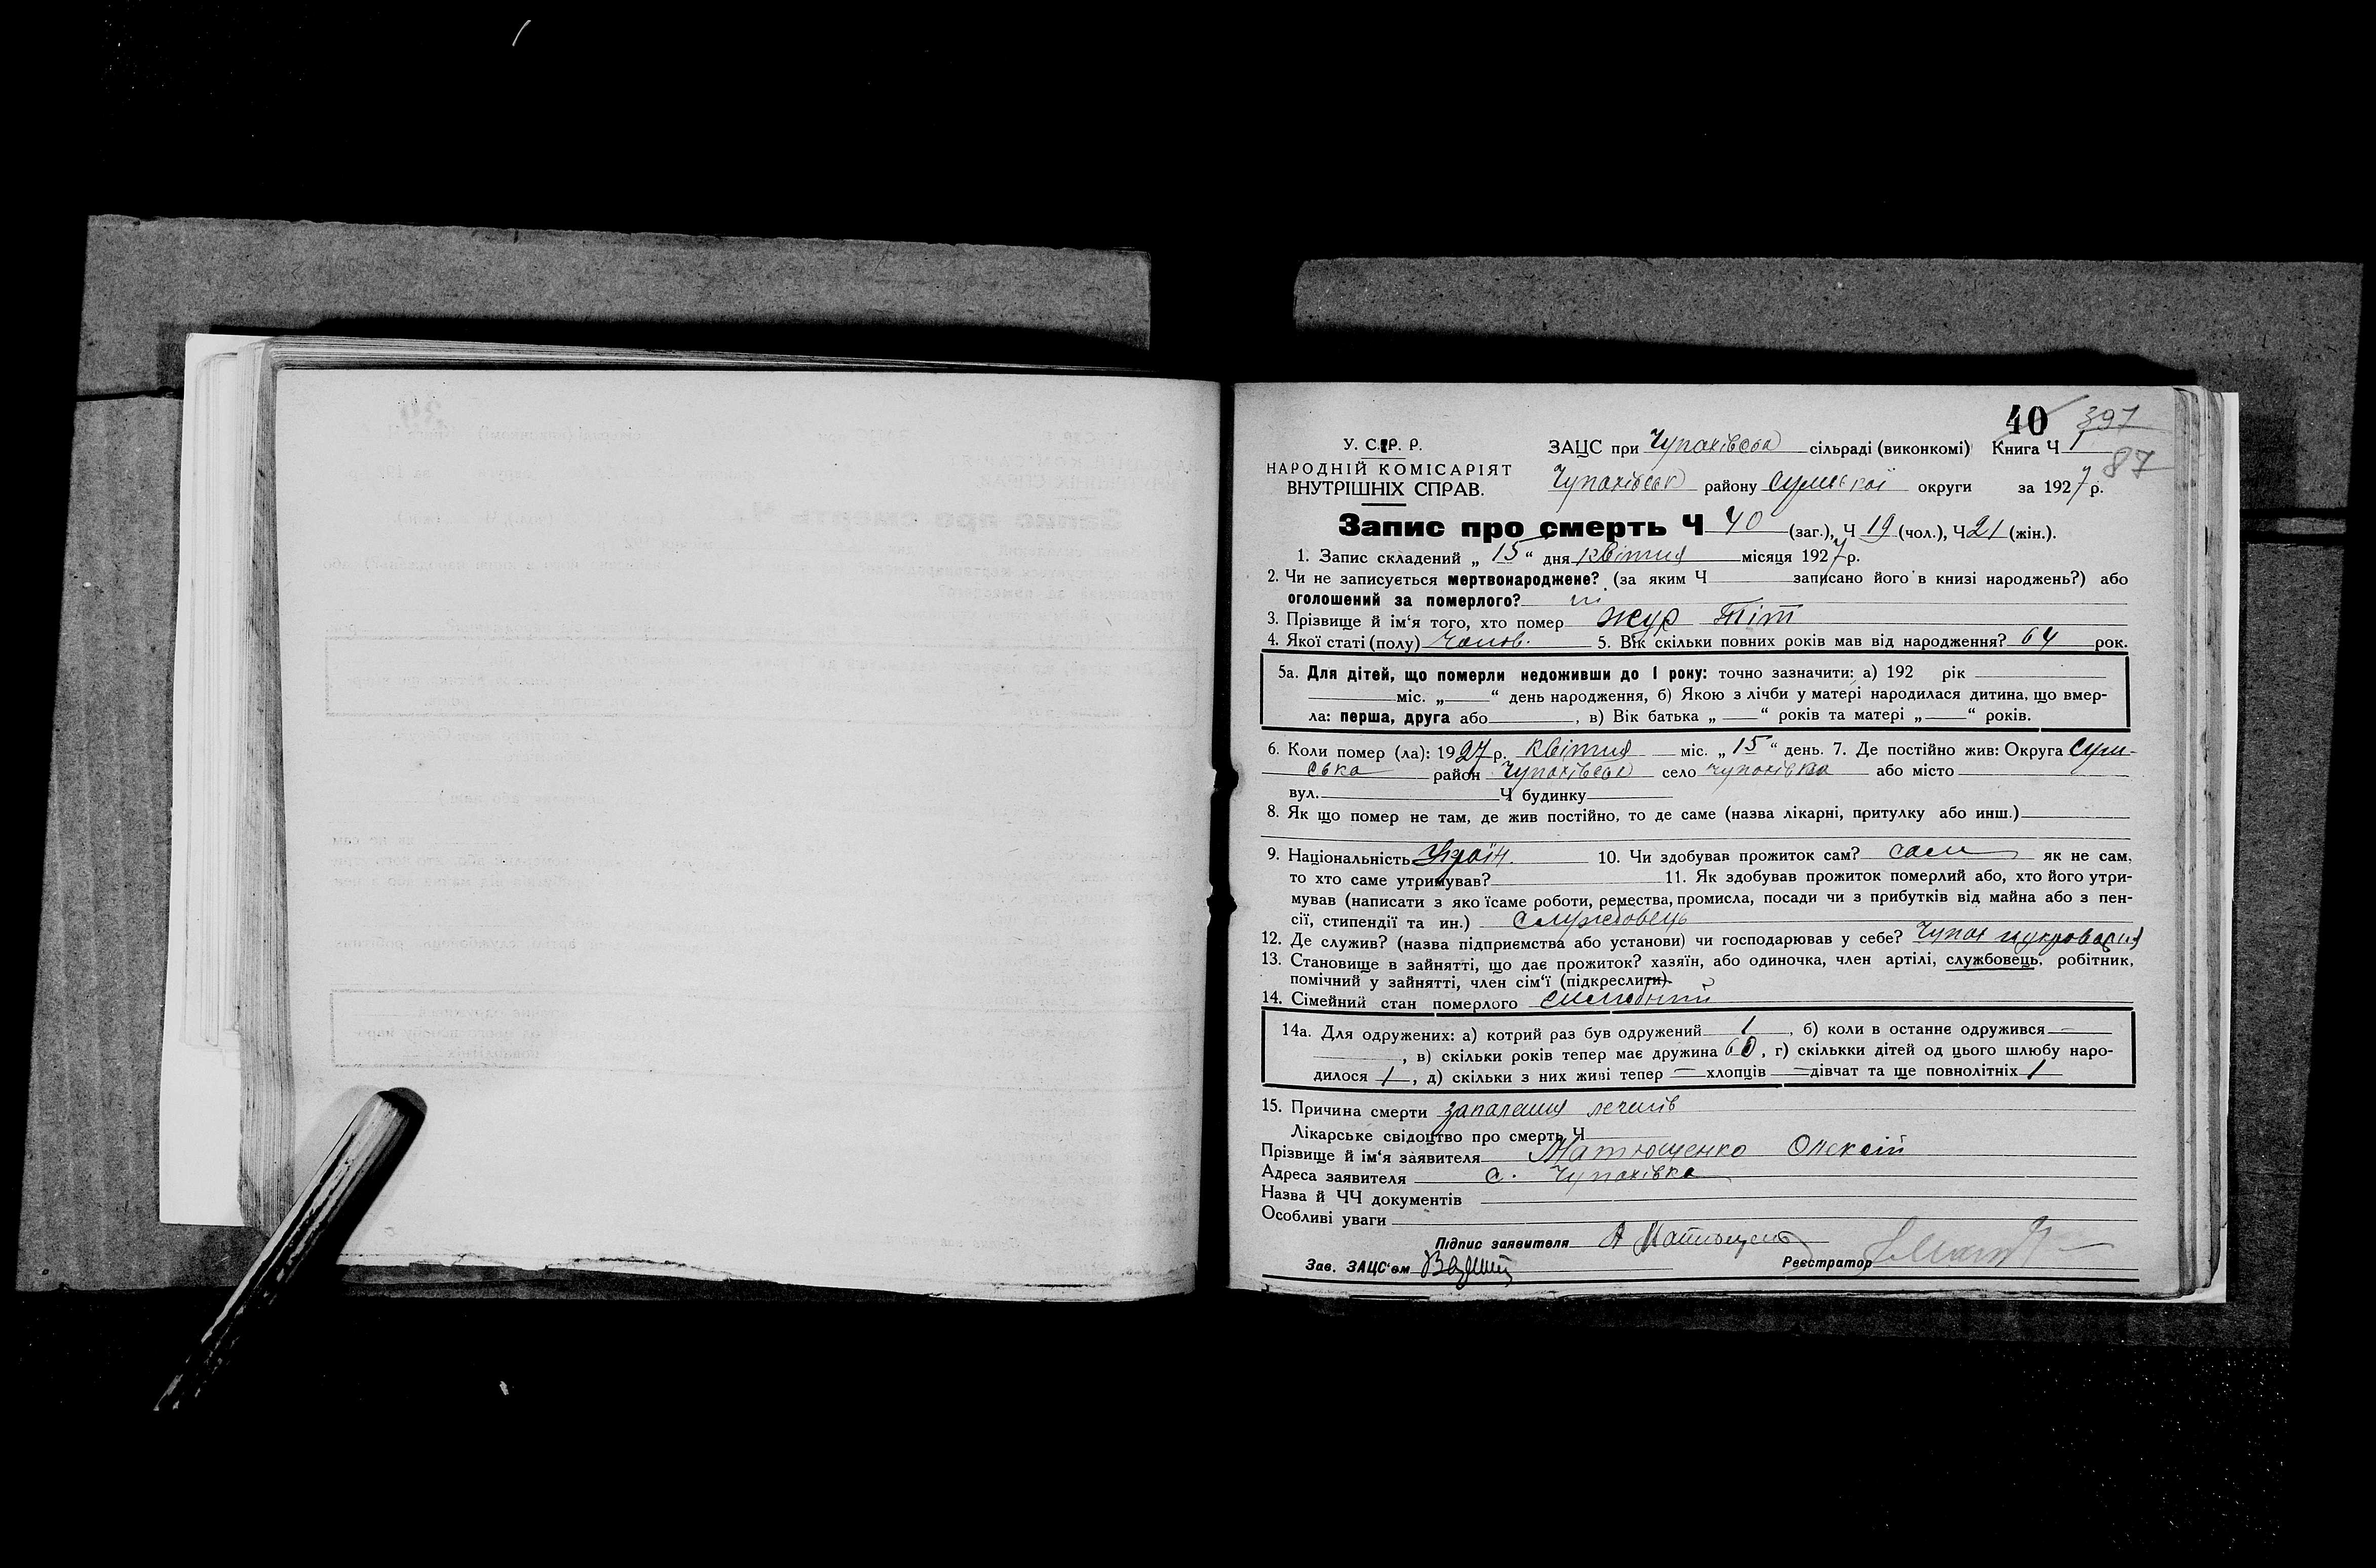 40 397
У. С. Р. Р. ЗАЦС при Чупахівська сільраді (виконкомі) Книга Ч 1
87
НАРОДНІЙ КОМІСАРІЯТ
ВНУТРІШНІХ СПРАВ. Чупахівськ району Сумської округи за 1927 р.
Запис про смерть Ч 40 (заг.), Ч 19 (чол.), Ч 21 (жін.).
1. Запис складений „ 15 “ дня квітня місяця 1927 р.
2. Чи не записується мертвонароджене? (за яким Ч записано його в книзі народжень?) або
оголошений за померлого? ні
3. Прізвище й ім‘я того, хто помер Жур Тіт
4. Якої статі (полу) Чолов. 5. Вік скільки повних років мав від народження? 64 рок.
5а. Для дітей, що померли недоживши до 1 року: точно зазначити: а) 192 рік
міс. „ “ день народження, б) Якою з лічби у матері народилася дитина, що вмер-
ла: перша, друга або , в) Вік батька „ “ років та матері „ “ років.
6. Коли помер (ла): 1927 р. квітня міс. „ 15 “ день. 7. Де постійно жив: Округа Сум-
ська район Чупахівськ село Чупахівка або місто
вул. Ч будинку
8. Як що помер не там, де жив постійно, то де саме (назва лікарні, притулку або инш.)
9. Національність Україн. 10. Чи здобував прожиток сам? сам як не сам,
то хто саме утримував? 11. Як здобував прожиток померлий або, хто його утри-
мував (написати з яко їсаме роботи, ремества, промисла, посади чи з прибутків від майна або з пен-
сії, стипендії та ин.) Службовець
12. Де служив? (назва підприємства або установи) чи господарював у себе? Чупах цукроварня
13. Становище в зайнятті, що дає прожиток? хазяїн, або одиночка, член артілі, службовець, робітник,
помічний у зайнятті, член сім‘ї (підкреслити).
14. Сімейний стан померлого
14а. Для одружених: а) котрий раз був одружений 1 , б) коли в останнє одружився —
, в) скільки років тепер має дружина 60 , г) скількки дітей од цього шлюбу наро-
дилося 1 , д) скільки з них живі тепер — хлопців — дівчат та ще повнолітніх 1
15. Причина смерти запалення легенів
Лікарське свідоцтво про смерть Ч
Прізвище й ім‘я заявителя Матющенко Олексій
Адреса заявителя с. Чупахівка
Назва й ЧЧ документів
Особливі уваги
Підпис заявителя А Матющенко
Зав. ЗАЦС‘ом Реєстратор